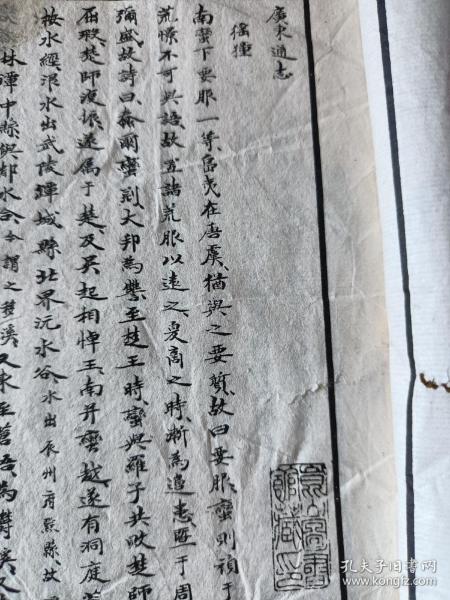 廣東通志
猺獞
南蠻下要服一等島夷在唐虞猶與之要質故曰要服蠻則頑于
荒憬不可與語故置諸荒服以遠之夏商之時漸為邊患曁于周
彌盛故詩曰蠢爾蠻荊大邦為讐至楚王時蠻與羅子共敗楚師
屈瑕楚師復振遂屬于楚及吳起相悼王南并蠻越遂有洞庭
按水經浪水出武陵鐔城縣北界沅水谷水出辰州府黔縣故
林潭中縣與鄰水合今謂之
溪又東至蒼梧為
孔夫子旧书网
www.kongfz.com